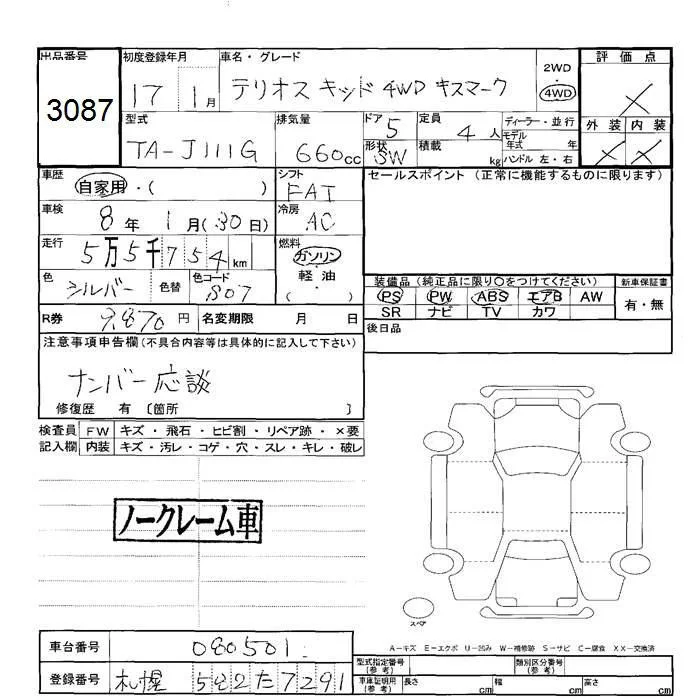 出品番号 初度登録年月 車名・グレード 2WD 評価点
3087 17 1月 テリオス キッド 4WD キスマーク 4WD ×
型式 排気量 ドア 5 定員 4人 ディーラー・並行 外装 内装
TA-J111G 660cc 形状 SW 積載 kg モデル年式 年 × ×
ハンドル 左・右
車歴 自家用・( ) シフト FAT セールスポイント (正常に機能するものに限ります)
車検 8年 1月(30日) 冷房 AC
走行 5万5千754km 燃料 ガソリン・軽油 ( )
色 シルバー 色替 色コード S07 装備品 (純正品に限り○をつけてください) 新車保証書
PS PW ABS エアB AW 有・無
SR ナビ TV カワ
R券 9,870円 名変期限 月 日 後日品
注意事項申告欄(不具合内容等は具体的に記入して下さい)
ナンバー応談
修復歴 有 〔箇所 〕
検査員 FW キズ・飛石・ヒビ割・リペア跡・×要
記入欄 内装 キズ・汚レ・コゲ・穴・スレ・キレ・破レ
ノークレーム車
スペア
A−キズ E−エクボ U−凹み W−補修跡 S−サビ C−腐食 XX−交換済
車台番号 080501 型式指定番号(参考) 類別区分番号(参考)
登録番号 札幌 582た7291 車庫証明用(参考) 長さ cm 幅 cm 高さ cm